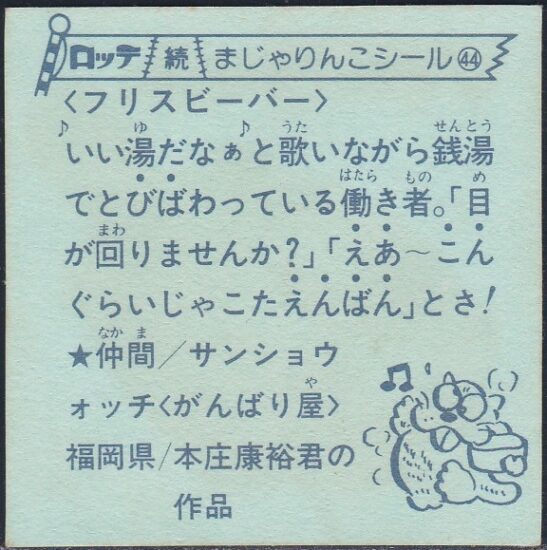 ロッテ 続 まじゃりんこシール㊹
〈フリスビーバー〉
♪いい湯だなぁ♪と歌いながら銭湯
でとびばわっている働き者。「目
が回りませんか?」「えあ〜こん
ぐらいじゃこたえんばん」とさ!
★仲間/サンショウ
ォッチ〈がんばり屋〉
福岡県/本庄康裕君の
作品